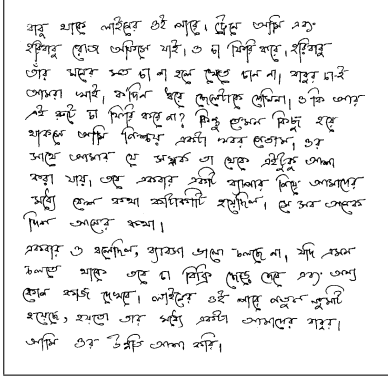 বাবু থাকে লাইনের ওই পারে, ট্রেনে আমি এবং
হরিবাবু রোজ অফিসে যাই, ও চা ফিরি করে, হরিবাবু
তাঁর মনের মত চা না হলে খেতে চান না, বাবুর চা-ই
আমরা খাই, কদিন ধরে ছেলেটাকে দেখিনা, ও কি আর
এই রুটে চা ফিরি করে না? কিন্তু তেমন কিছু হয়ে
থাকলে আমি নিশ্চয় একটা খবর পেতাম, ওর
সাথে আমার যে সম্পর্ক তা থেকে এইটুকু আশা
করা যায়, তবে একবার একটা ব্যাপার নিয়ে আমাদের
মধ্যে বেশ কথা কাটাকাটি হয়েছিল, সে সব অনেক
দিন আগের কথা।
একবার ও বলেছিল, ব্যাবসা ভালো চলছে না, যদি এমন
চলতে থাকে তবে চা বিক্রি ছেড়ে দেবে এবং অন্য
কোন কাজ দেখবে, লাইনের ওই পারে নতুন
হয়েছে, হয়তো তার মধ্যে একটা আমাদের বাবুর,
আমি ওর উন্নতি আশা করি।